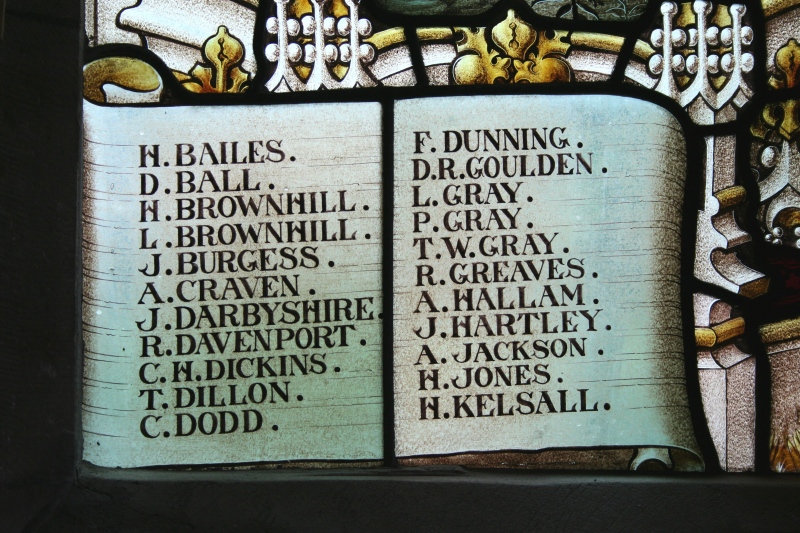 H. BAILES.
D. BALL.
H. BROWNHILL.
L. BROWNHILL.
J. BURGESS.
A. CRAVEN.
J. DARBYSHIRE.
R. DAVENPORT.
C. H. DICKINS.
T. DILLON.
C. DODD.
F. DUNNING.
D. R. GOULDEN.
L. GRAY.
P. GRAY.
T. W. GRAY.
R. GREAVES.
A. HALLAM.
J. HARTLEY.
A. JACKSON.
H. JONES.
H. KELSALL.